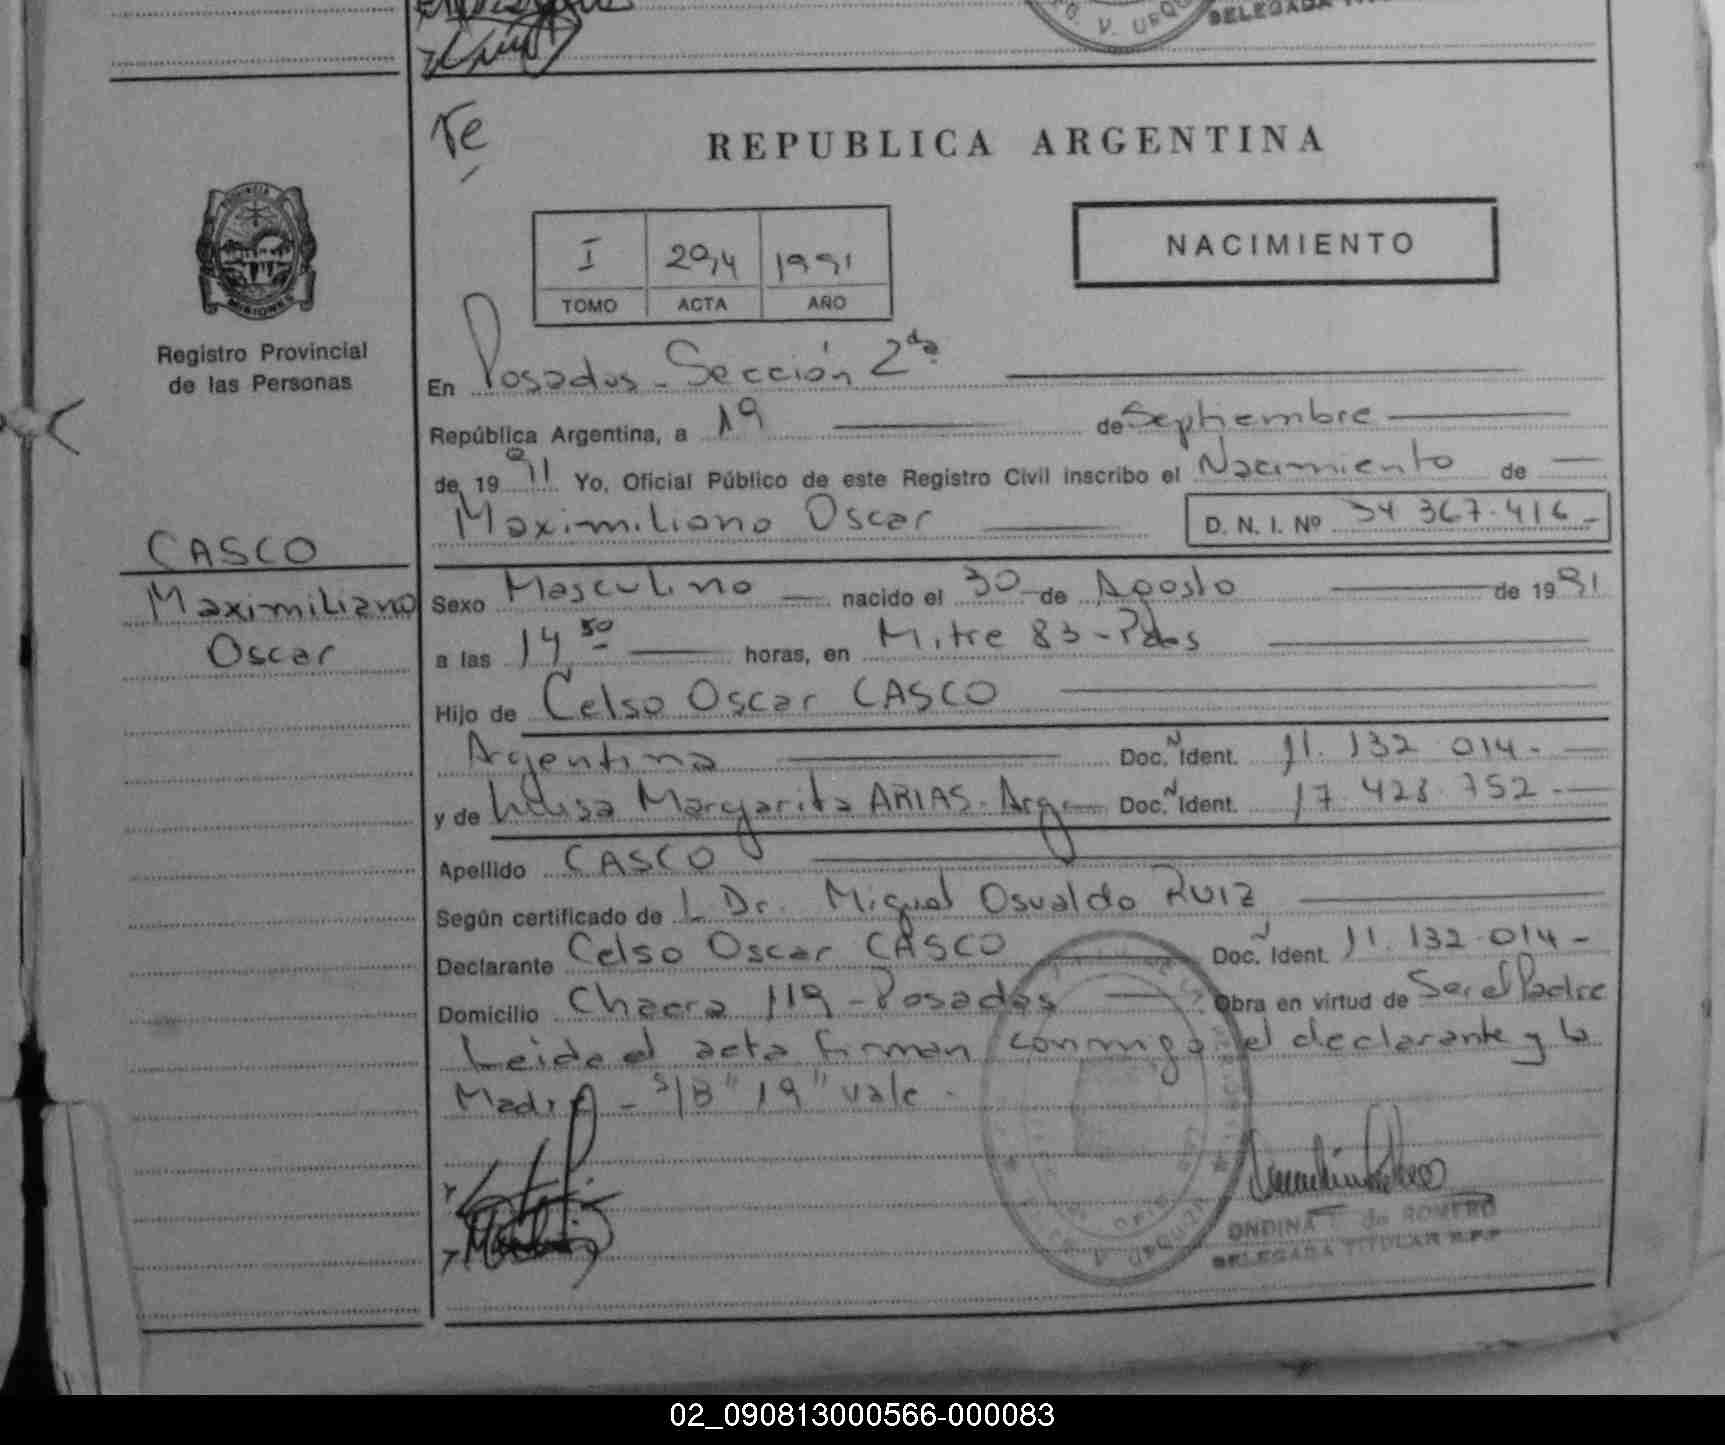 DELEGADA TITULAR
Te
REPUBLICA ARGENTINA
PROVINCIA
MISIONES
I 294 1991
TOMO ACTA AÑO
NACIMIENTO
Registro Provincial
de las Personas
En Posadas - Sección 2da
República Argentina, a 19 de Septiembre
de 1991 Yo, Oficial Público de este Registro Civil inscribo el Nacimiento de
Maximiliano Oscar D. N. I. Nº 34 367.416 -
CASCO
Maximiliano
Oscar
Sexo Masculino nacido el 30 de Agosto de 1991
a las 14 50 horas, en Mitre 83 - Pdas
Hijo de Celso Oscar CASCO
Argentina Doc. N Ident. 11. 132. 014 -
y de Luisa Margarita ARIAS - Arg Doc. N Ident. 17. 423. 752 -
Apellido CASCO
Según certificado de L Dr. Miguel Osvaldo RUIZ
Declarante Celso Oscar CASCO Doc. N Ident. 11. 132. 014 -
Domicilio Chacra 119 - Posadas Obra en virtud de Ser el Padre
Leida el acta firman conmigo el declarante y la
Madre - S/B "19" vale -
ONDINA de ROMERO
DELEGADA TITULAR R.P.P
02_090813000566-000083